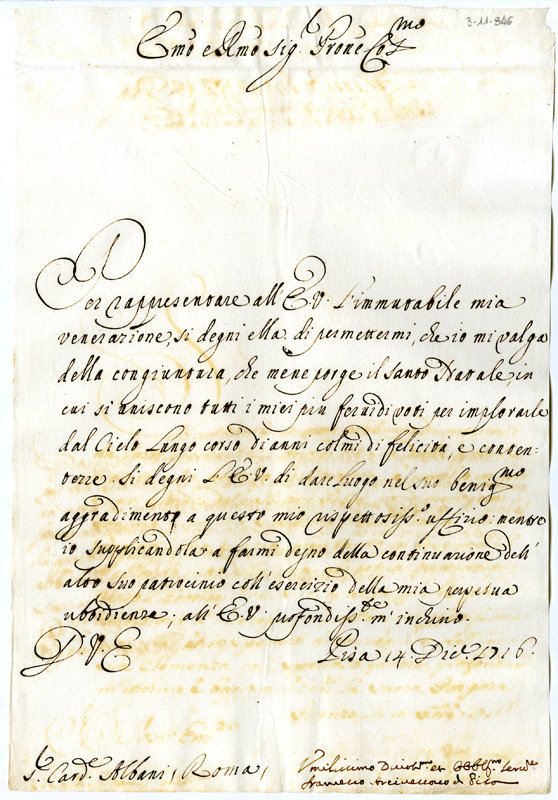 3-11-846
Emo e Rmo Sig.r Prone Col.mo
Per rappresentare all'E.V. l'immutabile mia
venerazione, si degni ella di permettermi, che io mi valga
della congiuntura, che mene porge il Santo Natale, in
cui si uniscono tutti i miei più fervidi voti per implorarle
dal Cielo lungo corso di anni colmi di felicità, e conten-
tezze. Si degni l'E.V. di dare luogo nel suo benig.mo
aggradimento a questo mio rispettosiss.o uffizio: mentre
io supplicandola a farmi degno della continuazione dell'
alto suo patrocinio coll'esercizio della mia perpetua
ubbidienza; all'E.V. profondiss.te m'inchino.
D. V. E. Pisa 14 Dic.e 1716.
S.r Card.e Albani, Roma,
Umilissimo Divot.mo et Obblig.mo Serv.e
Francesco Arcivescovo di Pisa